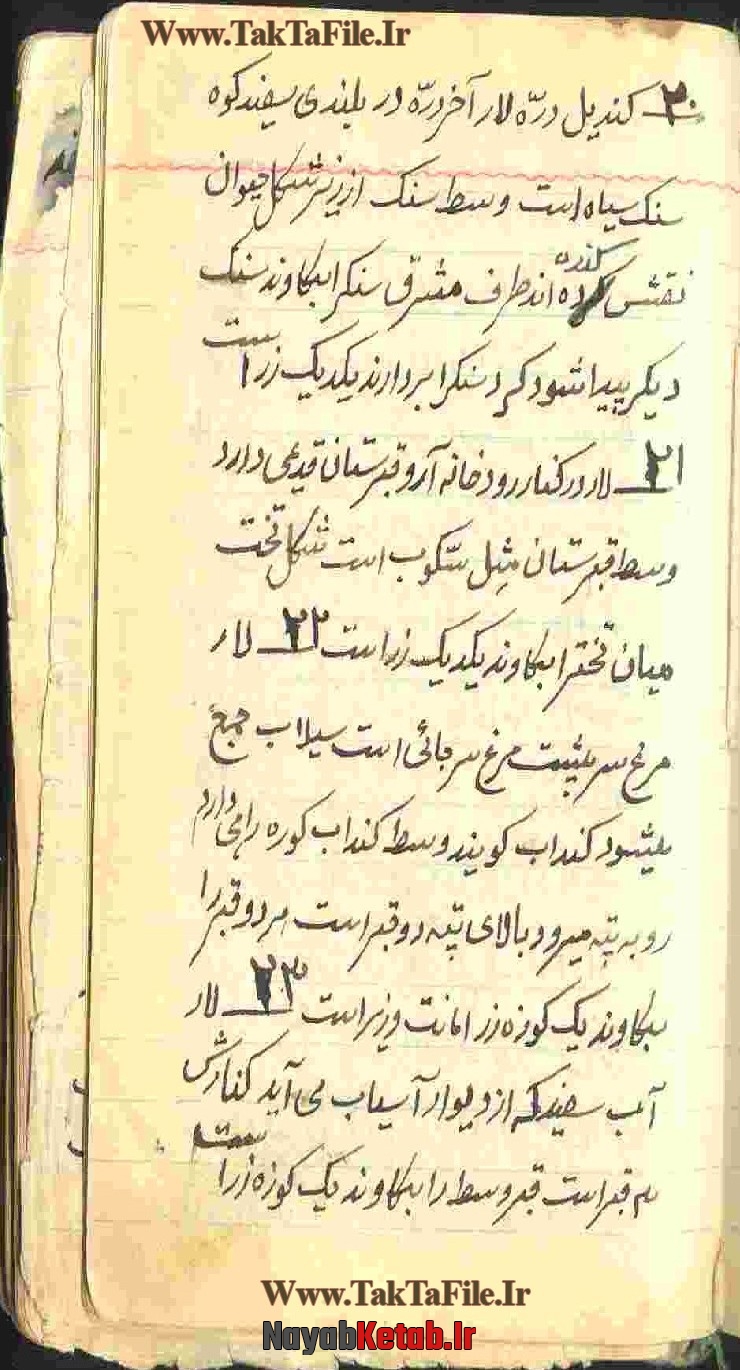 Www.TakTaFile.Ir
۲۰ کندیل درّه لار آخر درّه در بلندی سفیدکوه
سنک سیاه است وسط سنک از زیر شکل حیوان
نقش کنده اند طرف مشرق سنکرا بکاوند سنک
دیکر پیدا شود کرد سنکرا بردارند یکدیک زر است
۲۱ لار در کنار رودخانه آرو قبرستان قدیمی دارد
وسط قبرستان مثل سکّوب است شکل تخت
میان تخترا بکاوند یکدیک زر است ۲۲ لار
مرغ سر پشت مرغ سر جائی است سیلاب جمع
میشود کنداب کویند وسط کنداب کوره راهی دارد
رو به تپه میرود بالای تپه دو قبر است هر دو قبر را
بکاوند یک کوزه زر امانت وزیر است ۲۳ لار
آب سفید که از دیوار آسیاب می آید کنارش
سه قبر است قبر وسط را بکاوند یک کوزه زر است
Www.TakTaFile.Ir
NayabKetab.Ir